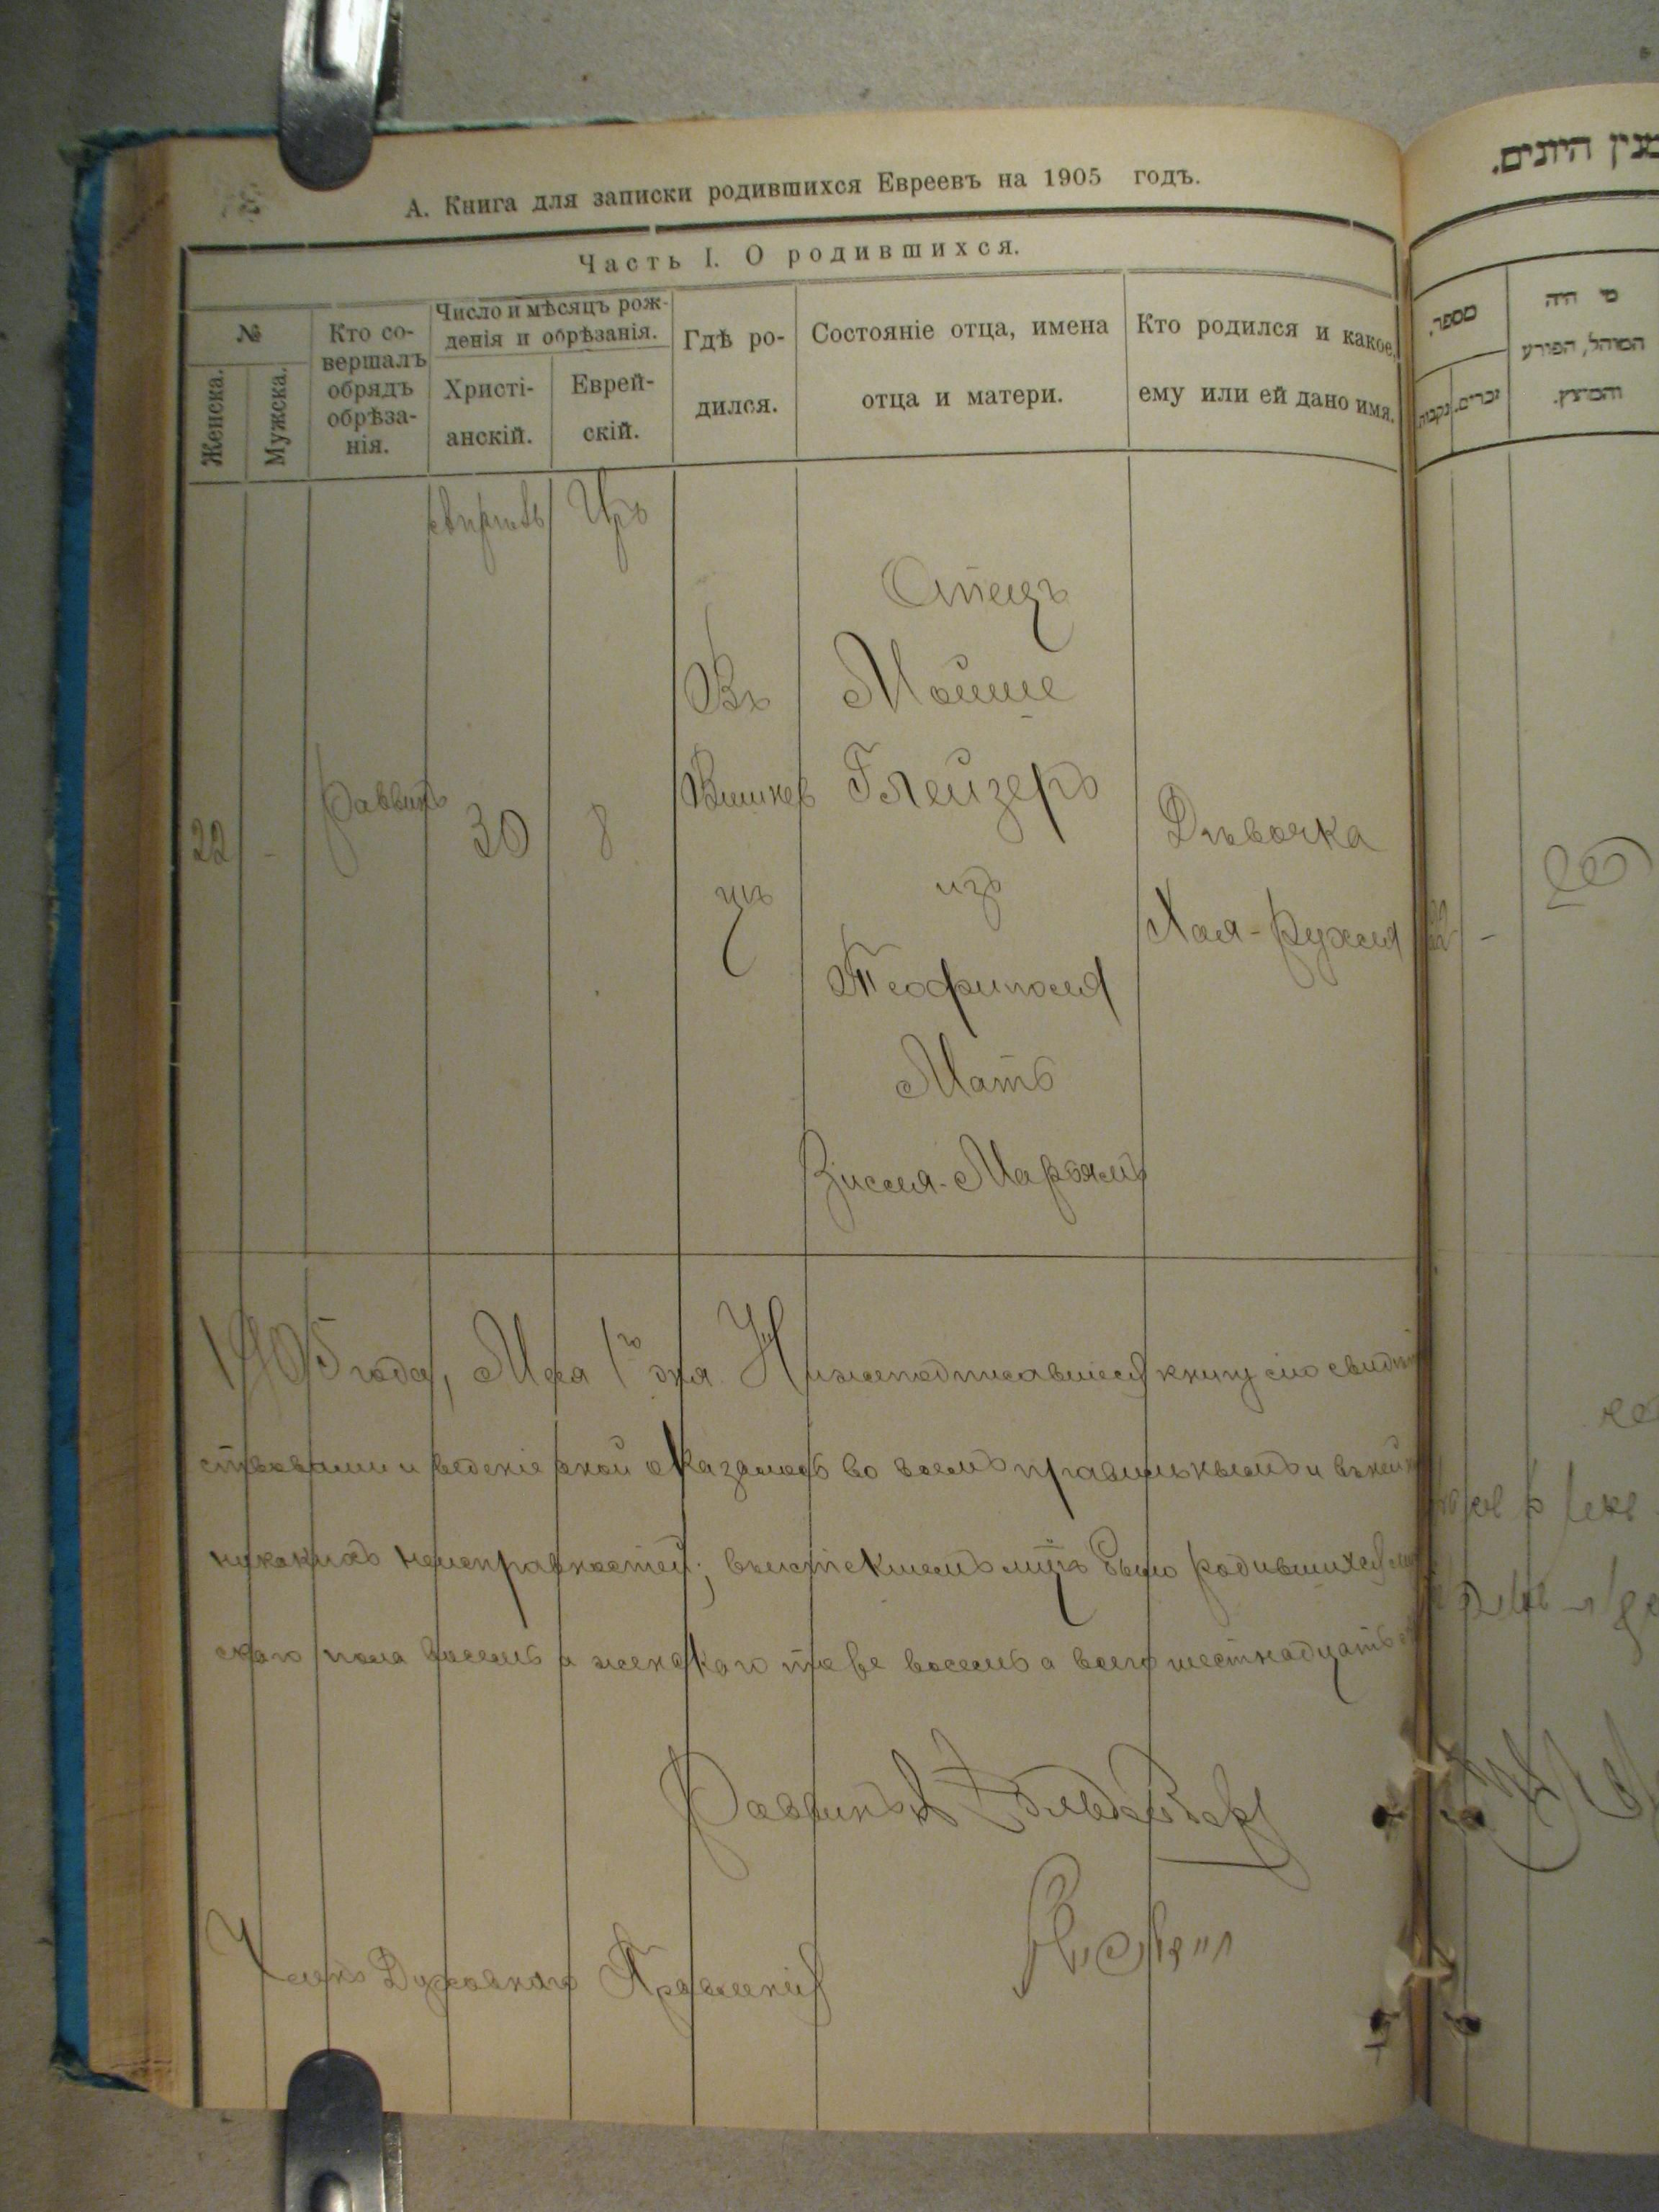 А. Книга для записки родившихся Евреевъ на 1905 годъ.
Часть I. О родившихся.
№
Женска.
Мужска.
Кто со-
вершалъ
обрядъ
обрѣза-
нія.
Число и мѣсяцъ рож-
денія и обрѣзанія.
Христі-
анскій.
Еврей-
скій.
Гдѣ ро-
дился.
Состояніе отца, имена
отца и матери.
Кто родился и какое
ему или ей дано имя.
Апрѣль
Иръ
22
-
Раввинъ
30
8
Въ
Вишнев
цѣ
Отецъ
Мойше
Глейзеръ
изъ
Теофиполя
Мать
Зисля-Марьямъ
Дѣвочка
Хая-Рухля
1905 года, Мая 1го дня. Нижеподписавшіеся книгу сію свидѣтель
ствовали и веденіе оной оказалось во всемъ правильнымъ и въ ней
никакихъ неисправностей; въ истекшемъ мцѣ было родившихся муж
скаго пола восемь а женскаго тоже восемь а всего шестнадцать
Раввинъ
Членъ Духовнаго Правленія
מנין היונים.
מספר.
נקבות.
זכרים.
מי היה
המוהל, הפורע
והמוצץ.
22
-